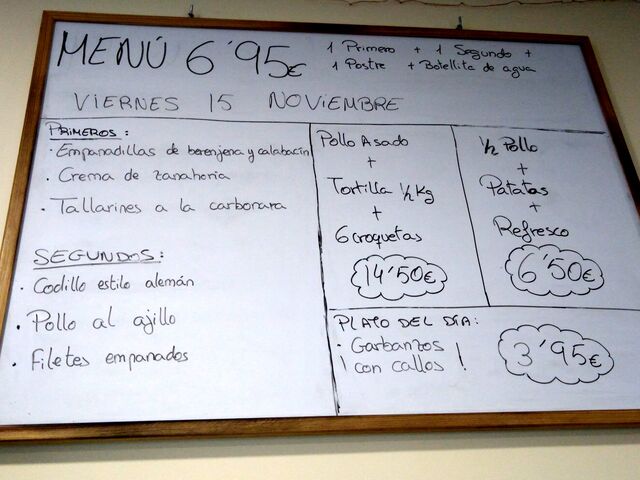 MENÚ 6'95€
1 Primero + 1 Segundo +
1 Postre + Botellita de agua
VIERNES 15 NOVIEMBRE
PRIMEROS:
· Empanadillas de berenjena y calabacín
· Crema de zanahoria
· Tallarines a la carbonara
SEGUNDOS:
· Codillo estilo alemán
· Pollo al ajillo
· Filetes empanados
Pollo Asado
+
Tortilla 1/2 Kg
+
6 croquetas
14'50€
1/2 Pollo
+
Patatas
+
Refresco
6'50€
PLATO DEL DÍA:
· Garbanzos
¡ con callos !
3'95€